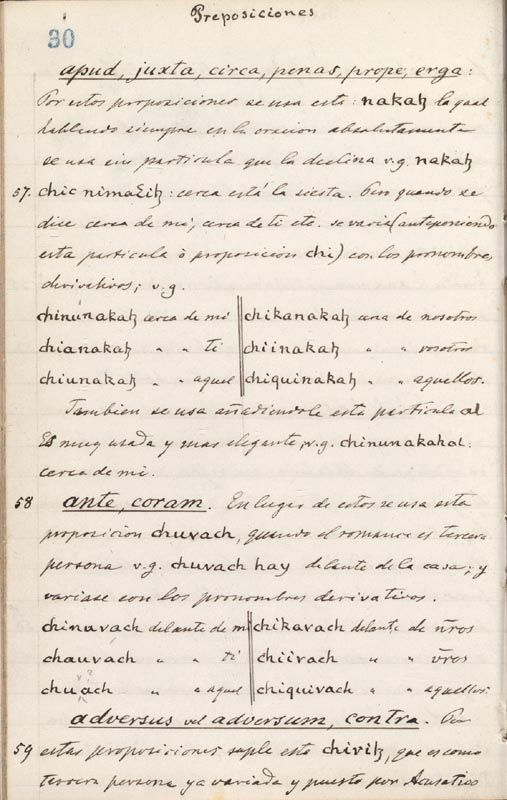 Preposiciones
30
apud, juxta, circa, penas, prope, erga:
Por estos proposiciones se usa esta: nakaꜩ la qual
hablando siempre en la oracion absolutamente
se usa sin particula que la declina v.g. nakaꜩ
57. chic nimaƐiꜩ: cerca está la siesta. Pero quando se
dice cerca de mi, cerca de ti etc. se varia (anteponiendo
esta particula ò proposicion chi) con los pronombres
derivativos; v.g.
chinúnakaꜩ cerca de mi chikanakaꜩ cerca de nosotros
chianakaꜩ " " ti chiinakaꜩ " " vosotros
chiunakaꜩ " " aquel chiquinakaꜩ " " aquellos.
Tambien se usa añadiendole esta particula al
Es muy usada y mas elegante, v.g. chinunakahal:
cerca de mi.
58 ante, coram. En lugar de estos se usa esta
proposicion chuvach, quando el romance es tercera
persona v.g. chuvach hay delante de la casa; y
variase con los pronombres derivativos.
chinuvach delante de mi chikavach delante de nr̃os
chauvach " " ti chiivach " " vr̃os
v?
chuach " " aquel chiquivach " " aquellos:
adversus vel adversum, contra. Por
59 estas proposiciones suple esta chiriꜩ, que es como
tercera persona ya variada y puesto por Acusativo